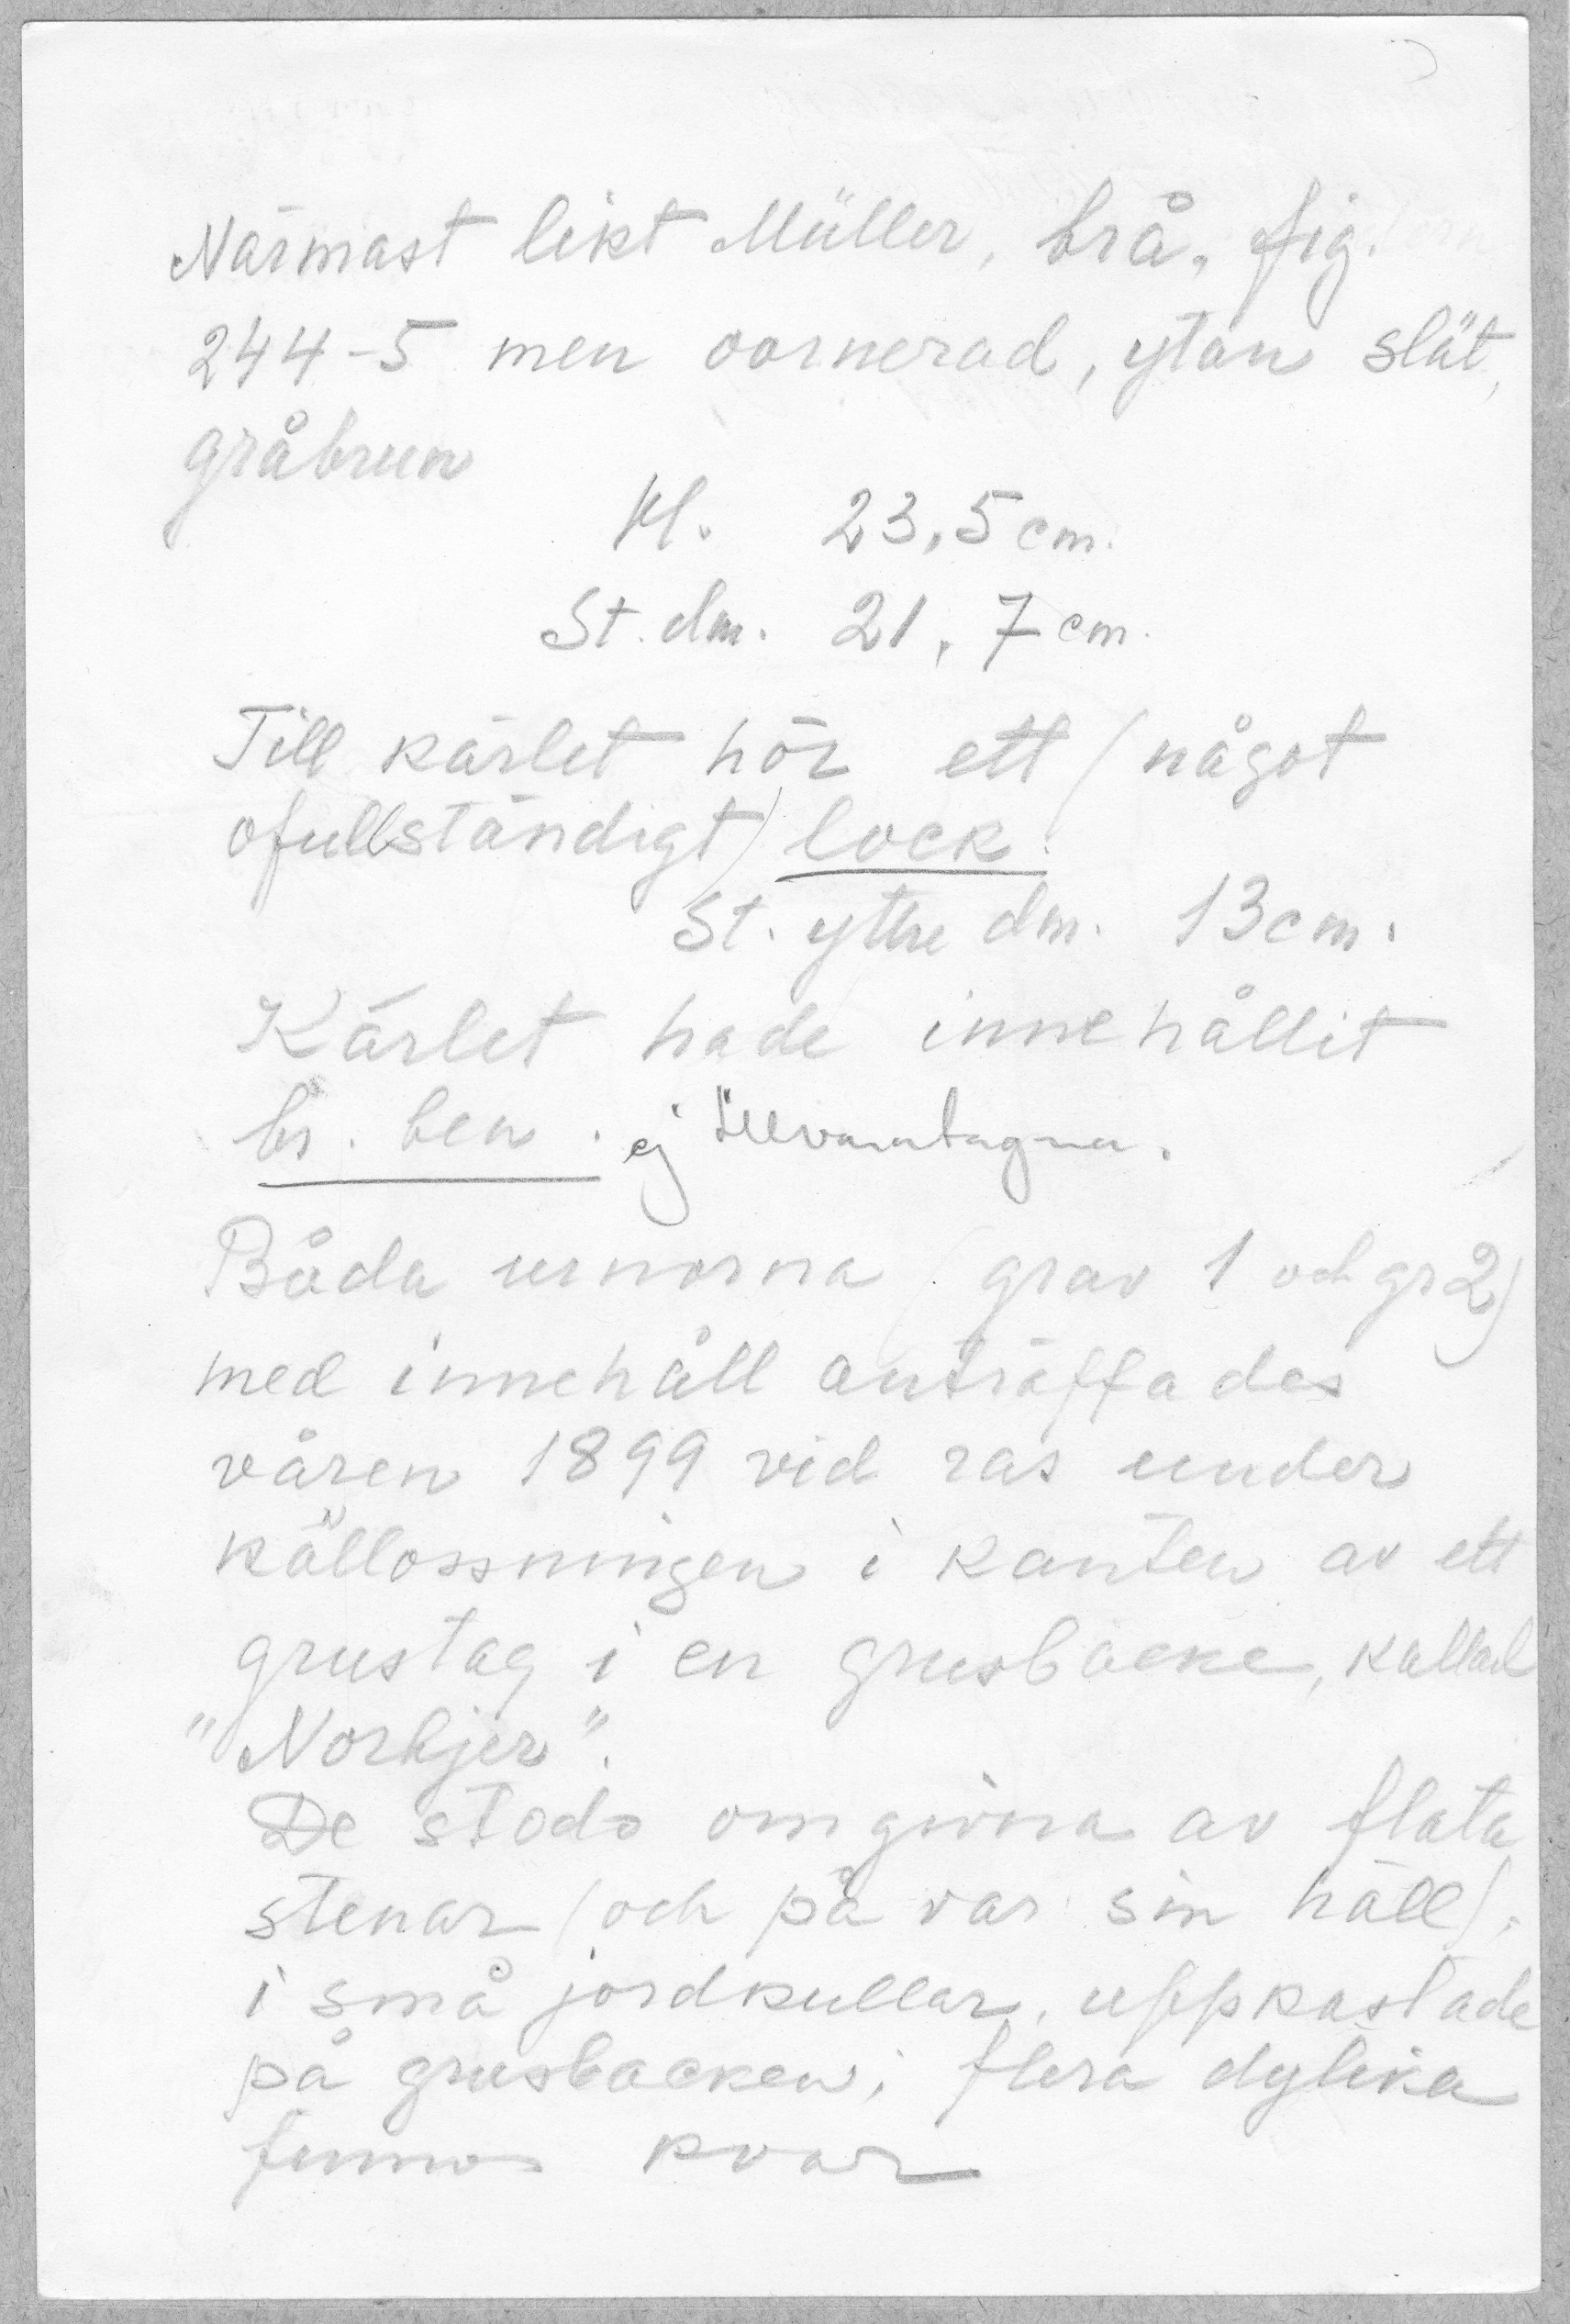 Närmast likt Müller, brå. fig.
244-5 men oornerad, ytan slät,
gråbrun
H. 23,5 cm.
St. dm. 21,7 cm.
Till kärlet hör ett (något
ofullständigt) lock.
St. yttre dm. 13 cm.
Kärlet hade innehållit
br. ben. ej tillvaratagna.
Båda urnorna (grav 1 och gr 2)
med innehåll anträffades
våren 1899 vid ras under
källossningen i kanten av ett
grustag i en grusbacke, kallad
De stodo omgivna av flata
stenar (och på var sin häll),
i små jordkullar, uppkastade
på grusbacken; flera dylika
funnos kvar